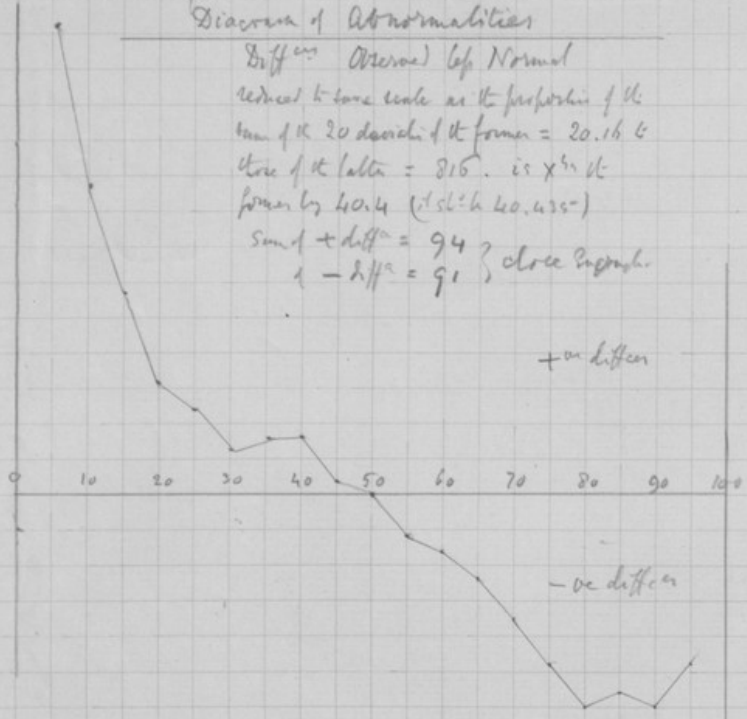 Diagram of Abnormalities
Diff^ces Observed less Normal
reduced to same scale as the proportion of the
sum of the 20 of the former = 20.16 to
those of the latter = 815. is the
former by 40.4 (it sh^d be 40.435)
Sum of + diff^s = 94
of - diff^s = 91 } close enough
+ve differ
0 10 20 30 40 50 60 70 80 90 100
-ve differ